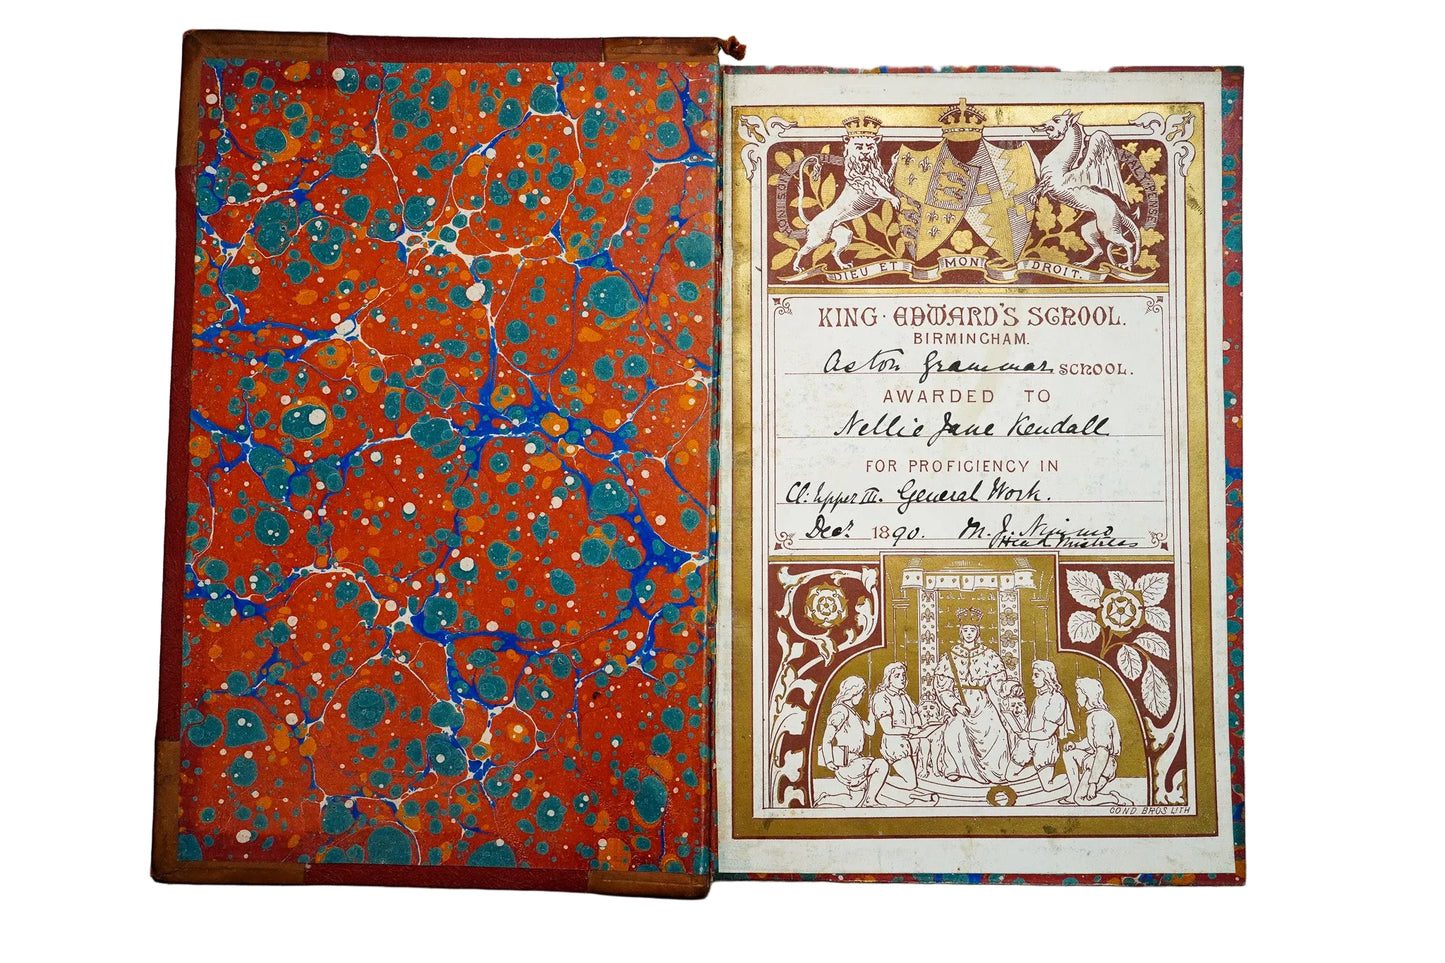 HONI SOIT
DIEU ET MON DROIT.
KING·EDWARD'S SCHOOL.
BIRMINGHAM.
Aston Grammar SCHOOL.
AWARDED TO
Nellie Jane Kendall
FOR PROFICIENCY IN
Cl: Upper III. General Work.
Decr. 1890. M. J. Nimmo
Head Mistress
COND BROS LITH